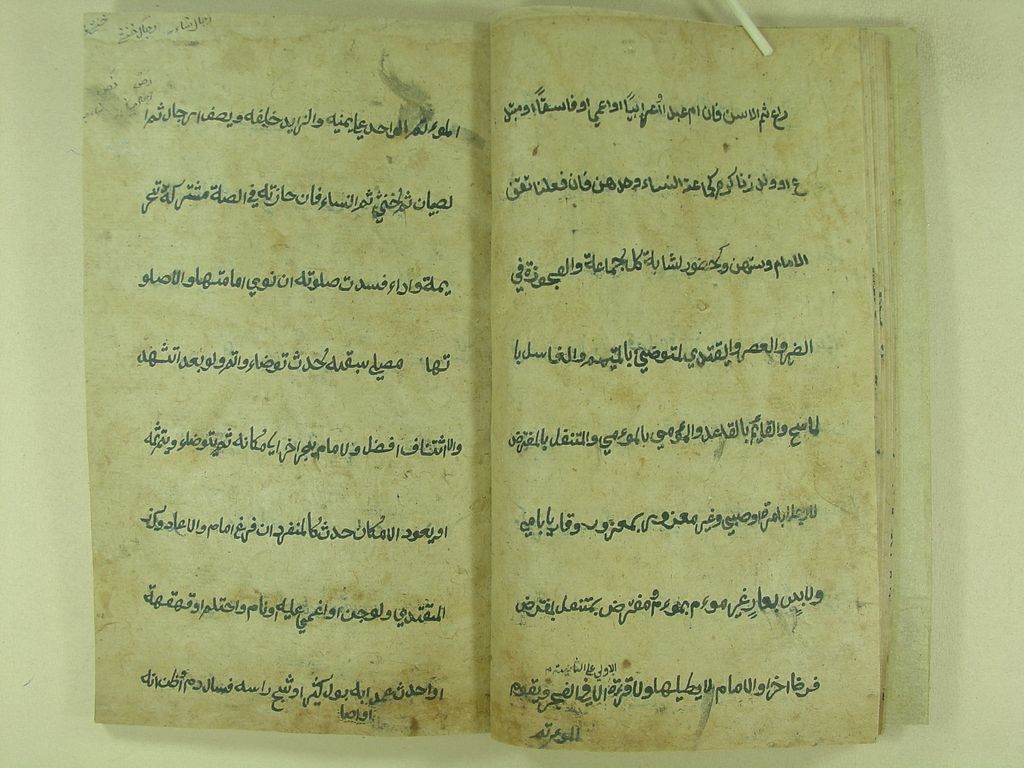 رع ثم الاسن فان ام عبد اعرابيا او اعمي او فاسقا او مبتد
ع او ولد زنا كره كجماعة النساء وحدهن فان فعلنا تقف
الامام وسهن وكحضور لشابة كل جماعة والعجوزة في
الضر والعصر والقتدي لمتوضي بالمتيمم والغاسل با
لماسح والقايم بالقاعد والمومي بالمومي والمتنفل بالمفترض
لا رجل بامرة او صبي وغير معذور بمعذور وقاري بامي
ولابس بعار غير مومء بمومء ومفترض بمتنفل بمفترض
الاولي علي الثانية
فرضا اخر والامام لا يطيلها ولا قرءة الا في الفجر ويقوم
المؤتم
المؤتم الواحد علي يمينه والزايد خلفه ويصف الرجال ثم ا
لصبيان ثم الخنثي ثم النساء فان حاذته في الصلة مشتركة تحر
يمة واداء فسدت صلوته ان نوي امامتها والا صلو
تها مصلي سبقه حدث توضاء واتم ولو بعد التشهد
والاستئناف افضل والامام يجر اخر الي مكانه ثم يتوضاء ويتم ثمه
او يعود الامكان حدث كالمنفرد ان فرغ امام والا عاد وكذ
المقتدي ولو جن او اغمي عليه ونام واحتلم او قهقهة
او احدث عمدا به بول كثير او شج راسه فسال دم او ظن انه
او اصا